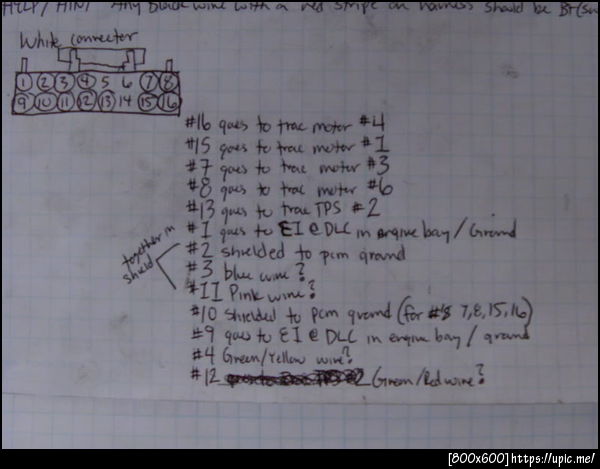 HELP/HINT Any black wire with a red stripe on harness should be B+(sw
White connector
1 2 3 4 5 6 7 8
9 10 11 12 13 14 15 16
#16 goes to trac motor #4
#15 goes to trac motor #1
#7 goes to trac motor #3
#8 goes to trac motor #6
#13 goes to trac TPS #2
#1 goes to E1 @ DLC in engine bay/Ground
#2 shielded to pcm ground
together in shield
#3 blue wire?
#11 Pink wire?
#10 shielded to pcm ground (for #'s 7,8,15,16)
#9 goes to E1 @ DLC in engine bay/ground
#4 Green/Yellow wire?
#12 Green/Red wire?
[800x600]https://upic.me/